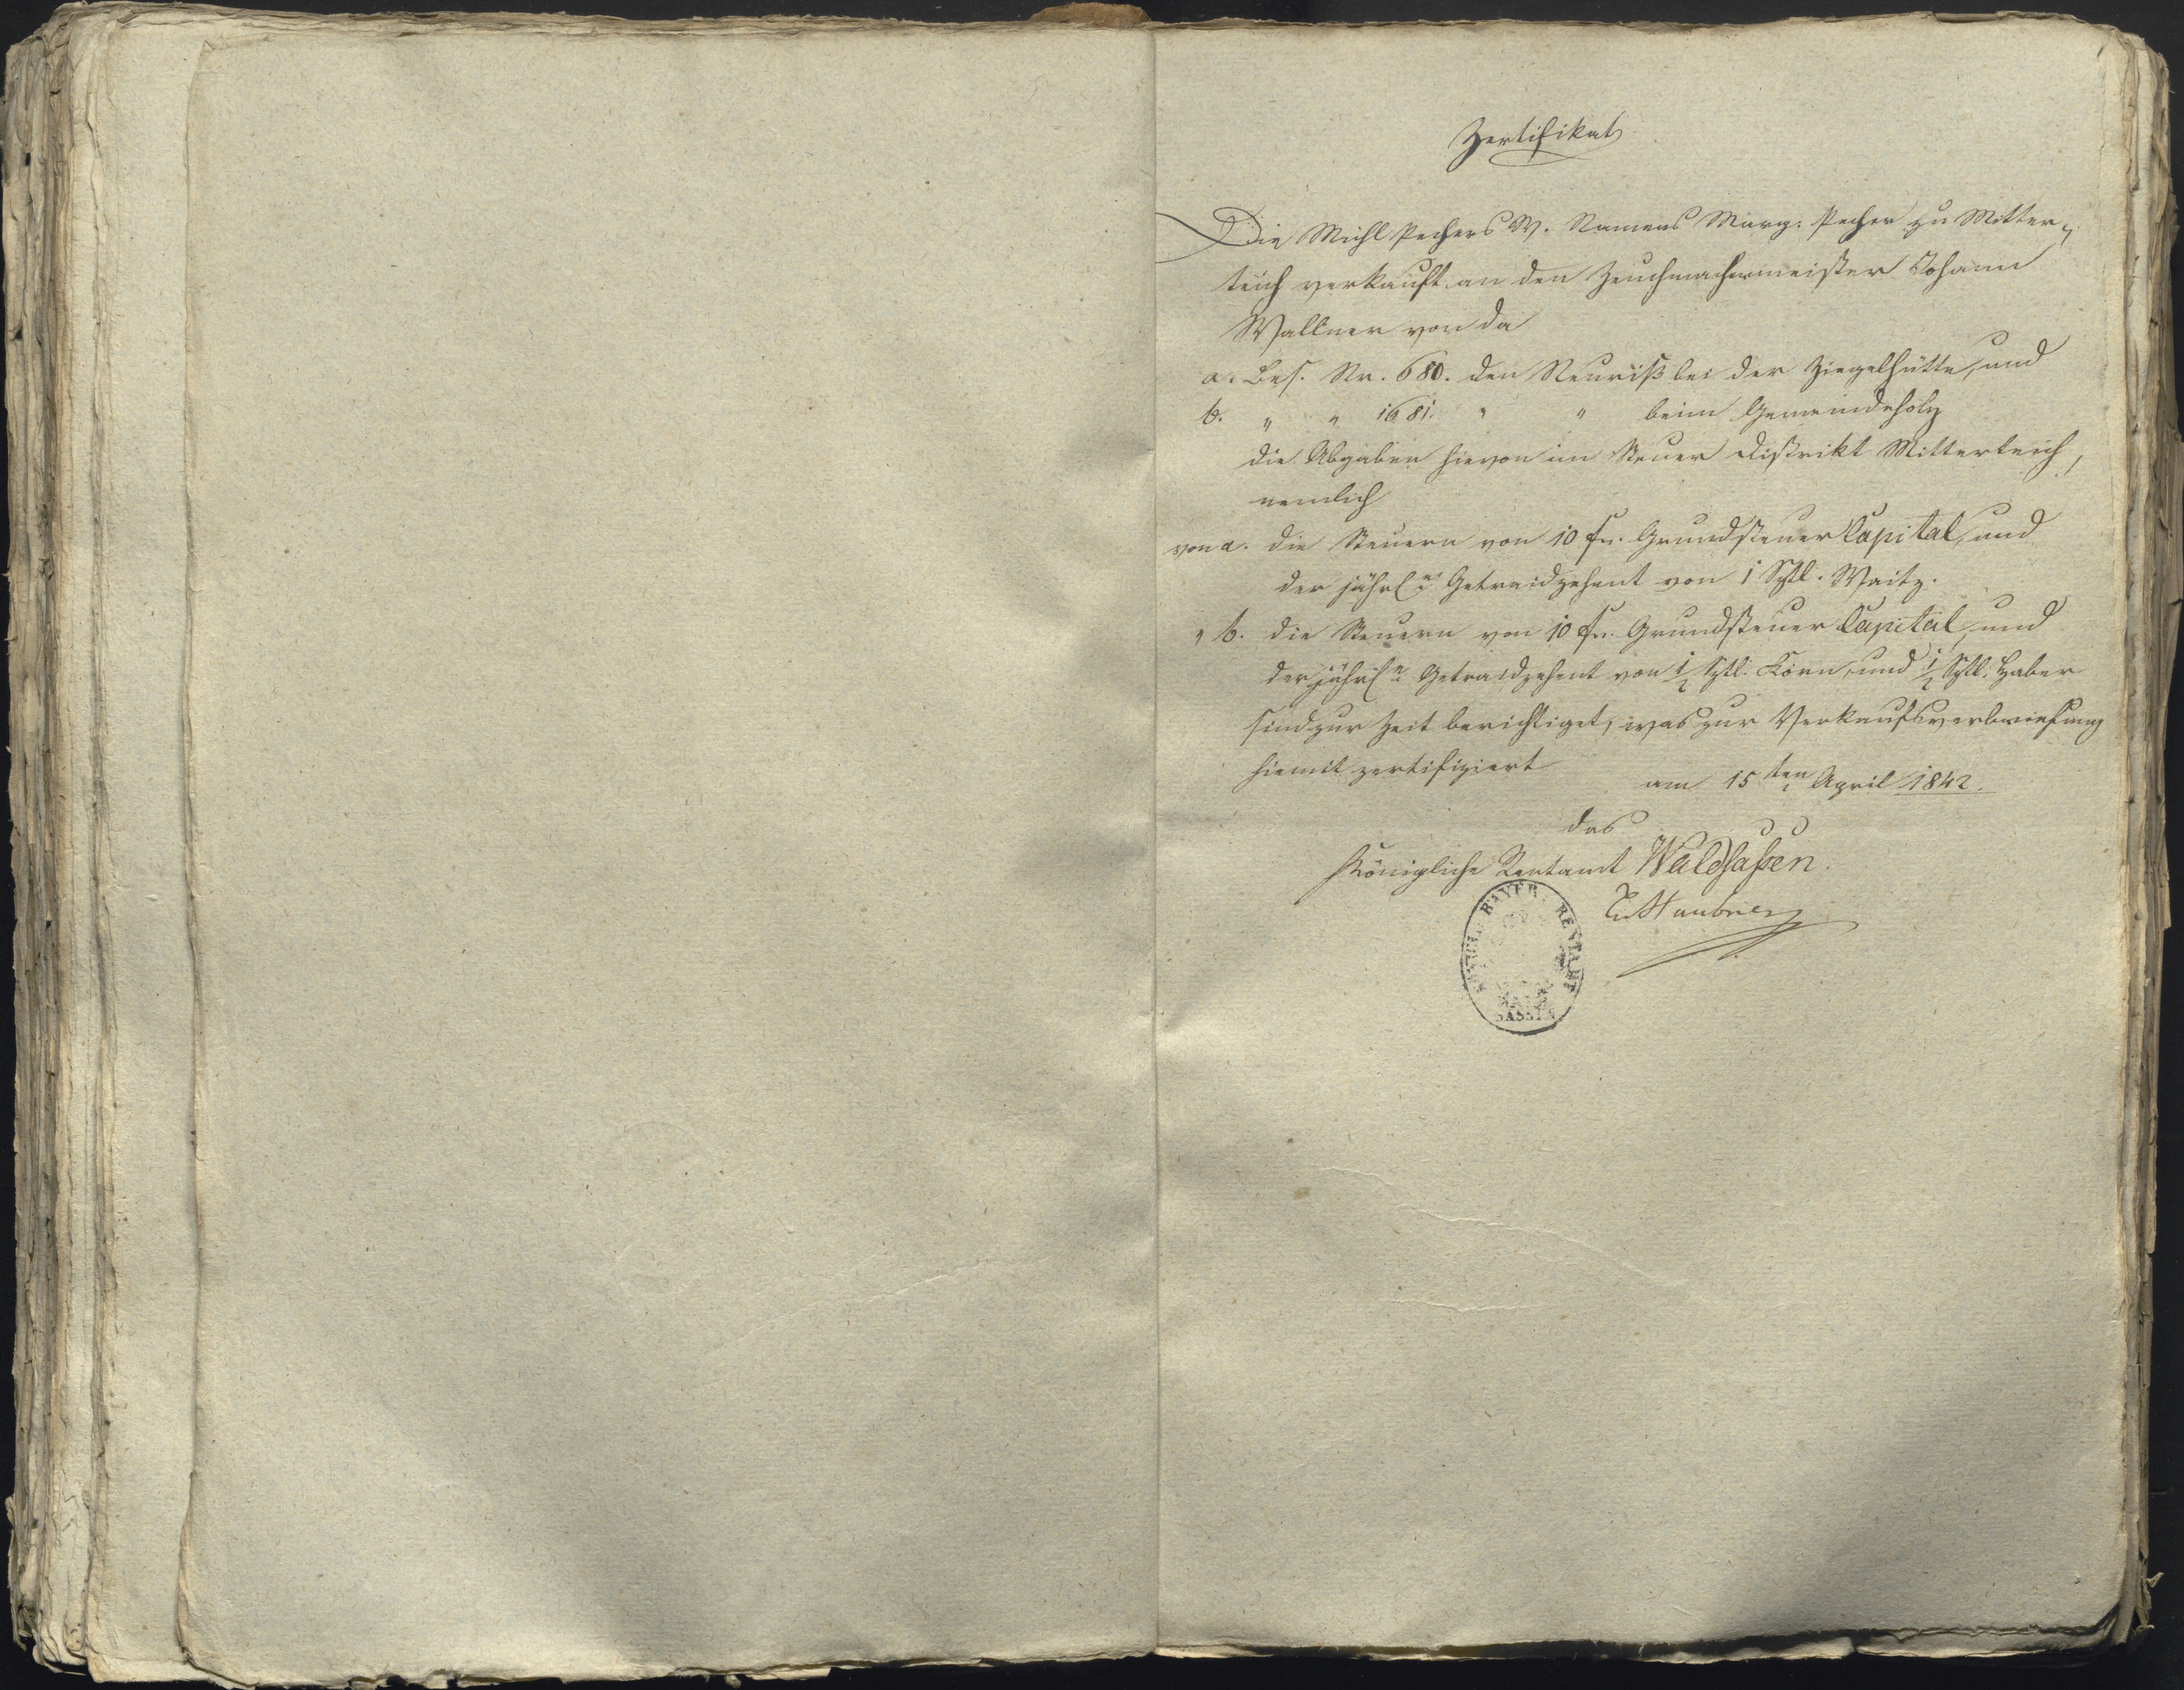 Zertifikat
Die Michl Pechers W. Namens Marg: Pecher zu Mitter-
teich verkauft an den Zeuchmachermeister Johann
Wallner von da
a. Bes. Nr. 680. den Neuriß bei der Ziegelhütte, und
b. " " 1681. " " beim Gemeindeholz
die Abgaben hievon im Steuer Distrikt Mitterteich,
nemlich
von a. die Steuern von 10 fr. Grundsteuer Capital, und
der jährl. Getraidzehent von 1 Sztl. Waitz.
" b. die Steuern von 10 fr. Grundsteuer Capital, und
der jährl. Getraidzehent von 1/2 Sztl. Korn, und 1/2 Sztl. Haber
sind zur Zeit berichtiget, was zur Verkaufsverbriefung
hiemit zertifiziert
am 15ten April 1842.
das
Königliche Rentamt Waldsaßen.
BAYER. RENTAMT
SASSEN